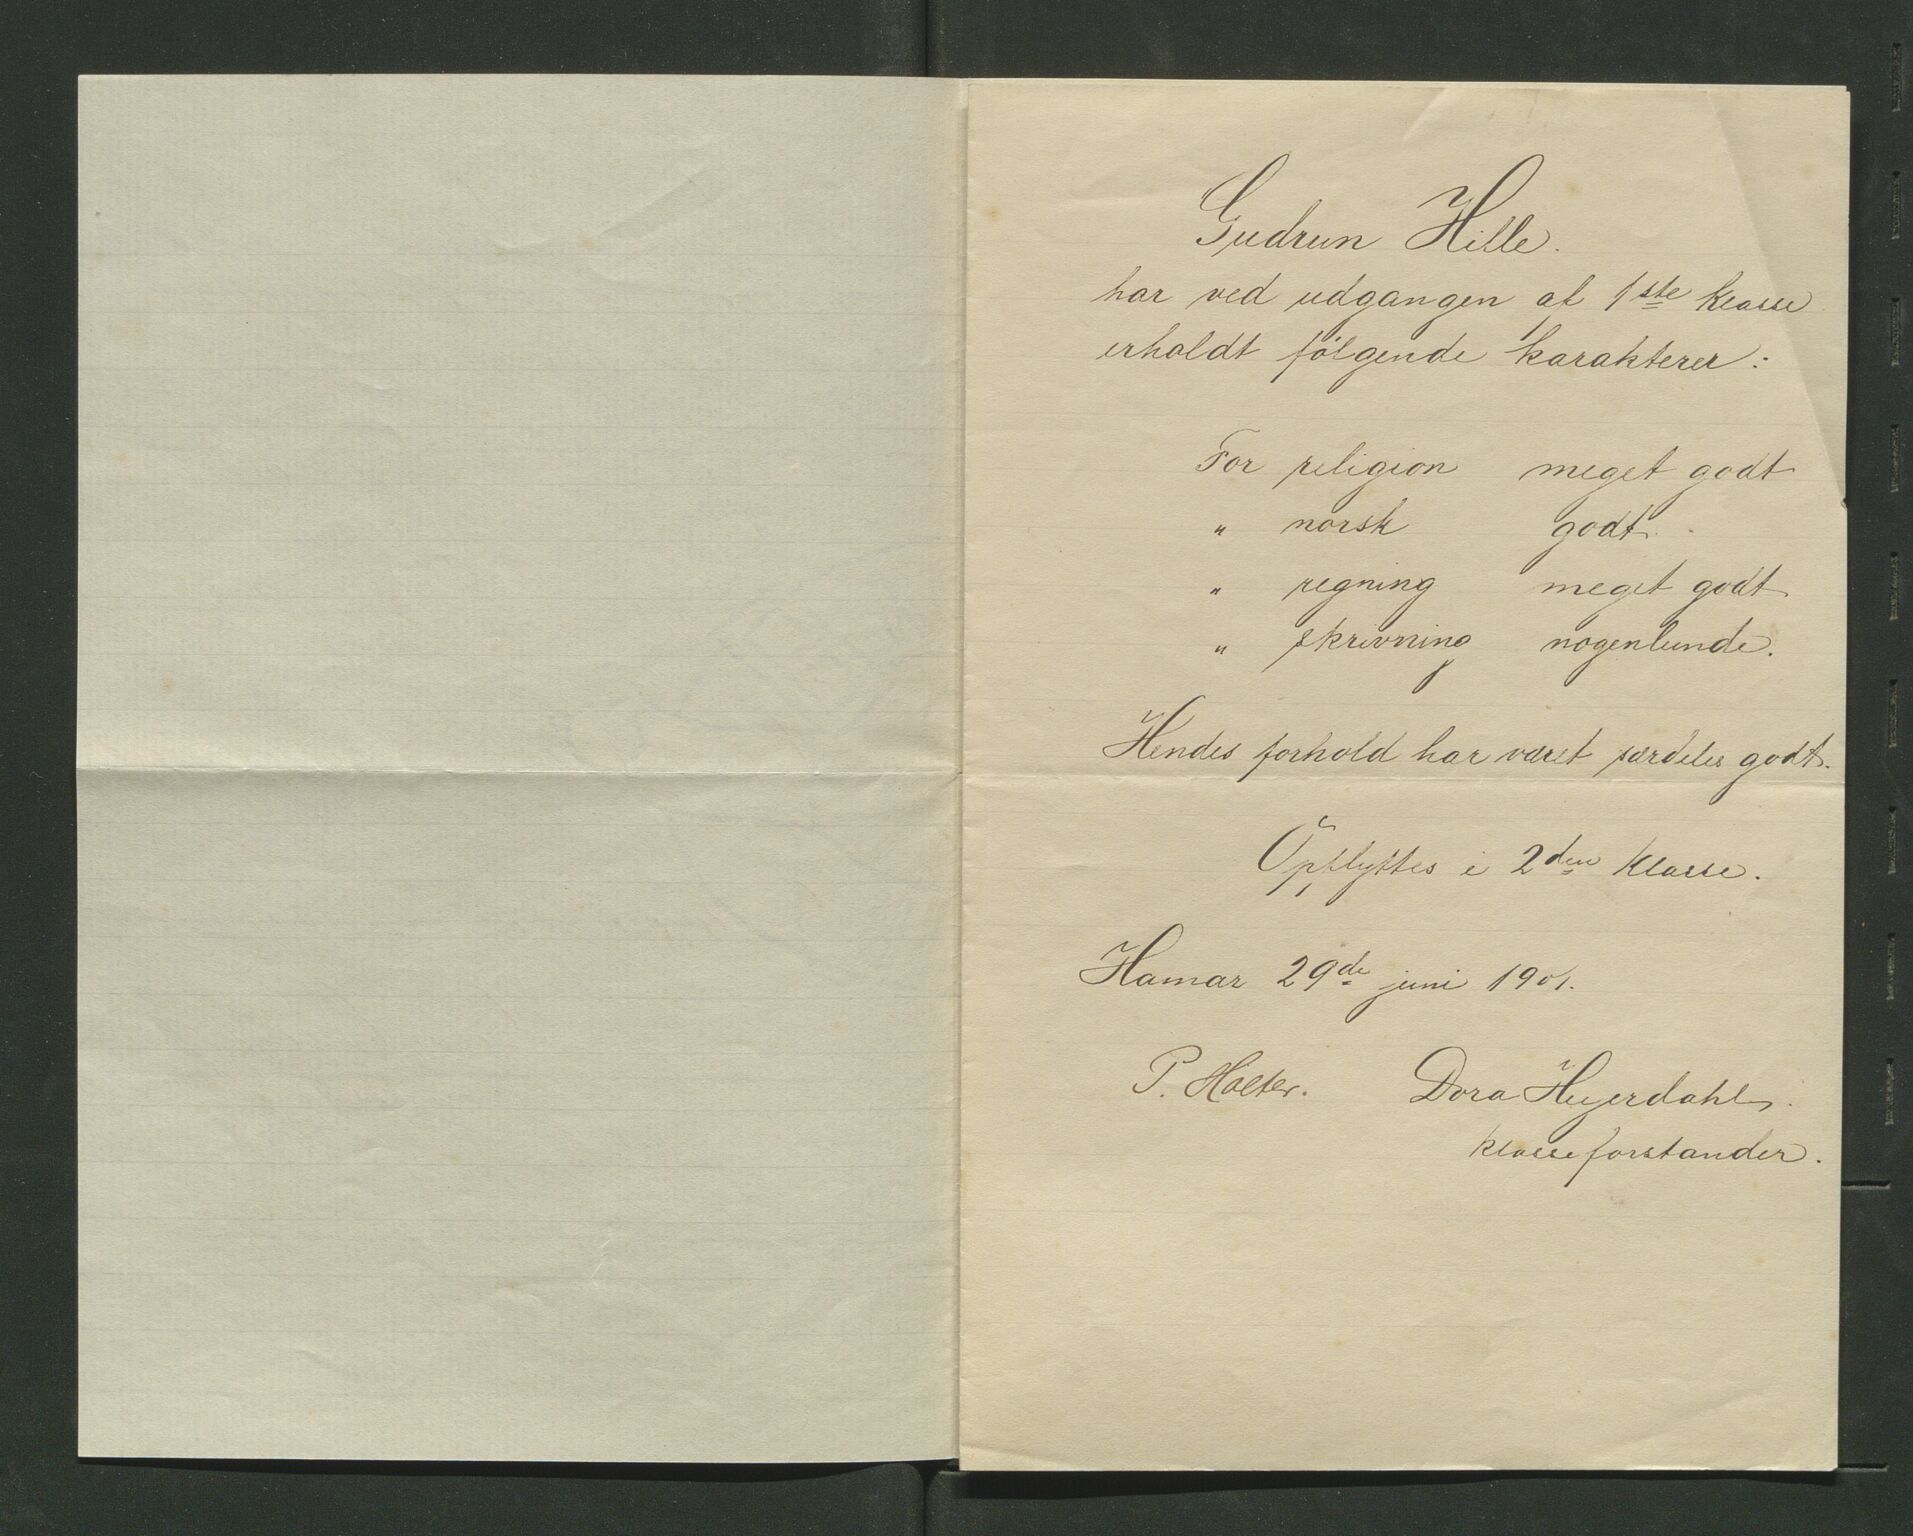 Gudrun Hille.
har ved udgangen af 1ste klasse
erholdt følgende karakterer:
For religion meget godt
" norsk godt.
" regning meget godt
" skrivning nogenlunde.
Hendes forhold har været særdeles godt.
Opflyttes i 2den klasse.
Hamar 29de juni 1901.
P. Holter. Dora Heyerdahl.
klasseforstander.